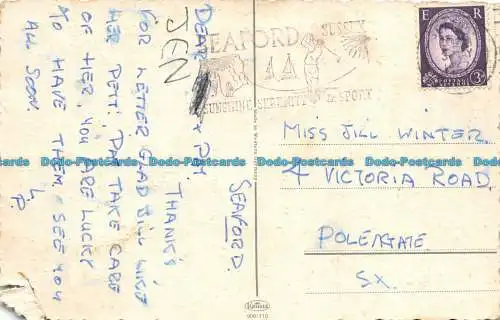 SEAFORD.
DEAR JEN
THANKS
FOR LETTER GLAD JILL LIKED
HER PETT: PAT TAKE CARE
OF HER, YOU ARE LUCKY
TO HAVE THEM - SEE YOU
ALL SOON.
SEAFORD
SUSSEX
SUNSHINE SERENITY & SPORT
E R
POSTAGE
3D
MISS JILL WINTER.
4 VICTORIA ROAD.
POLEGATE
SX.
Dodo-Postcards Dodo-Postcards Dodo-Postcards Dodo-Postcards